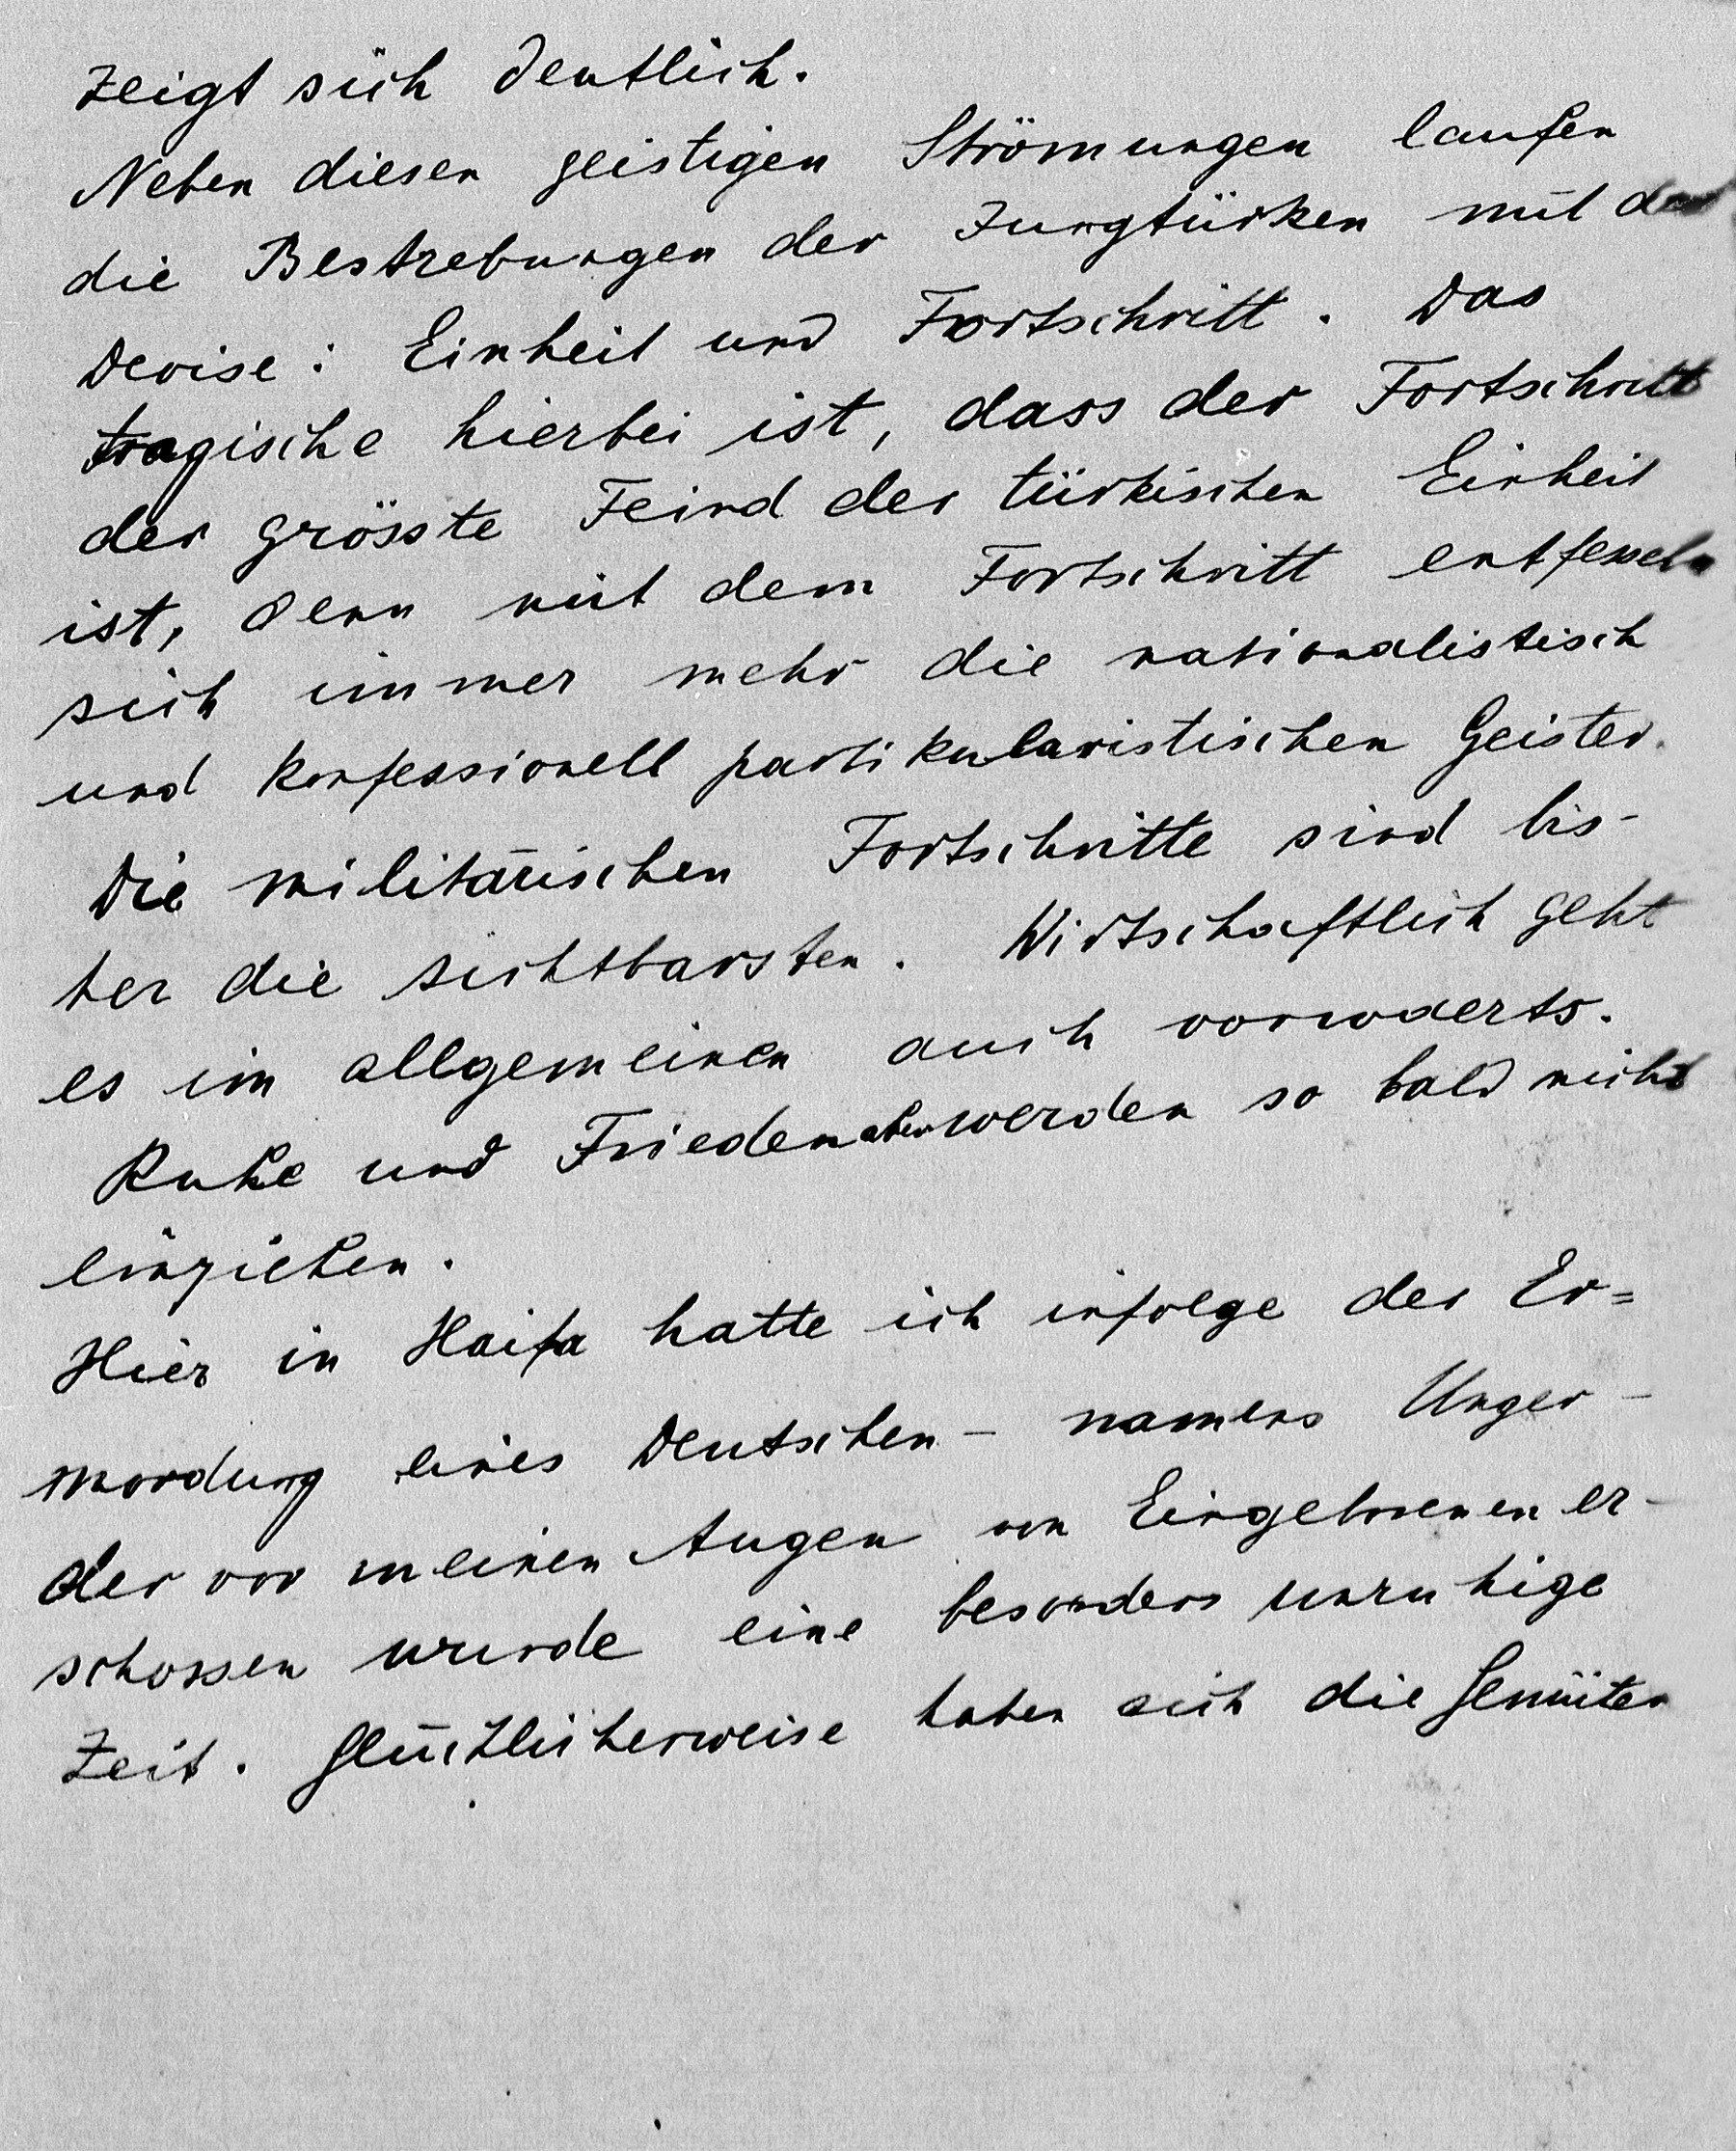 zeigt sich deutlich.
Neben diesen geistigen Strömungen laufen
die Bestrebungen der Jungtürken mit der
Devise: Einheit und Fortschritt. Das
tragische hierbei ist, dass der Fortschritt
der grösste Feind der türkischen Einheit
ist, denn mit dem Fortschritt entfesseln
sich immer mehr die nationalistisch
und konfessionell partikularistischen Geister.
Die militärischen Fortschritte sind bis-
her die sichtbarsten. Wirtschaftlich geht
es im allgemeinen auch vorwaerts.
Ruhe und Frieden aber werden so bald nicht
einziehen.
Hier in Haifa hatte ich infolge der Er=
mordung eines Deutschen - namens Unger -
der vor meinen Augen von Eingeborenen er-
schossen wurde eine besonders unruhige
Zeit. Glücklicherweise haben sich die Gemüter